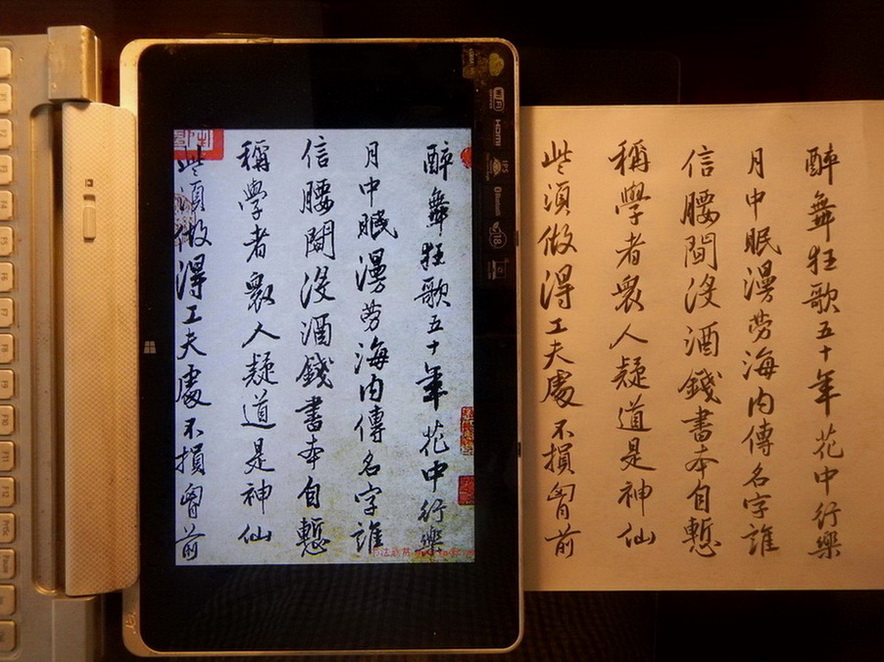 醉舞狂歌五十年花中行樂
月中眠漫勞海内傳名字誰
信腰間没酒錢書本自慙
稱學者衆人疑道是神仙
些須做得工夫處不損胷前
WiFi
HDMI
IPS
Bluetooth
醉舞狂歌五十年花中行樂
月中眠漫勞海内傳名字誰
信腰間没酒錢書本自慙
稱學者衆人疑道是神仙
些須做得工夫處不損胷前